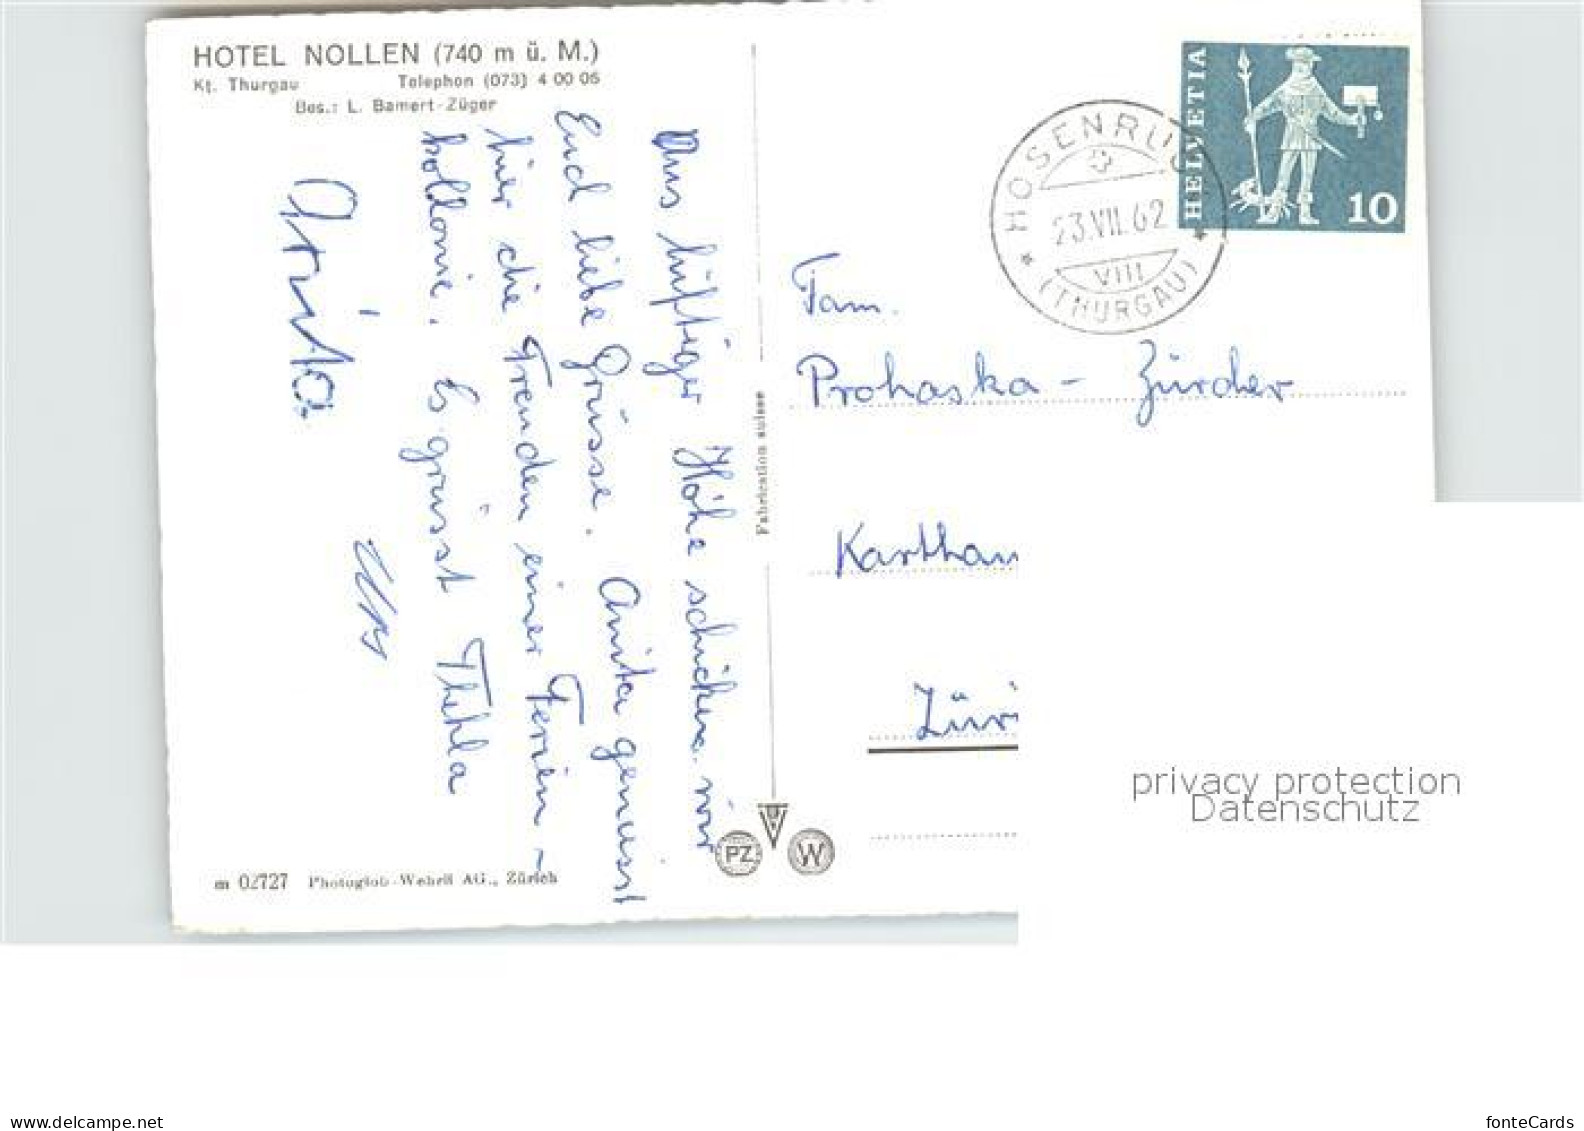 HOTEL NOLLEN (740 m ü. M.)
Kt. Thurgau Telephon (073) 4 00 05
Bes.: L. Bamert-Züger
Aus luftiger Höhe schicken wir
Euch liebe Grüsse. Anita geniesst
hier die Freuden einer Ferien-
kolonie. Es grüsst Thekla
Anita
Fabrication suisse
PZ
W
m 02727 Photoglob-Wehrli AG., Zürich
HELVETIA
10
HOSENRUCK
23.VII.62
VIII
(THURGAU)
Fam.
Prohaska - Zürcher
Karthau
Züri
privacy protection
Datenschutz
www.delcampe.net
fonteCards